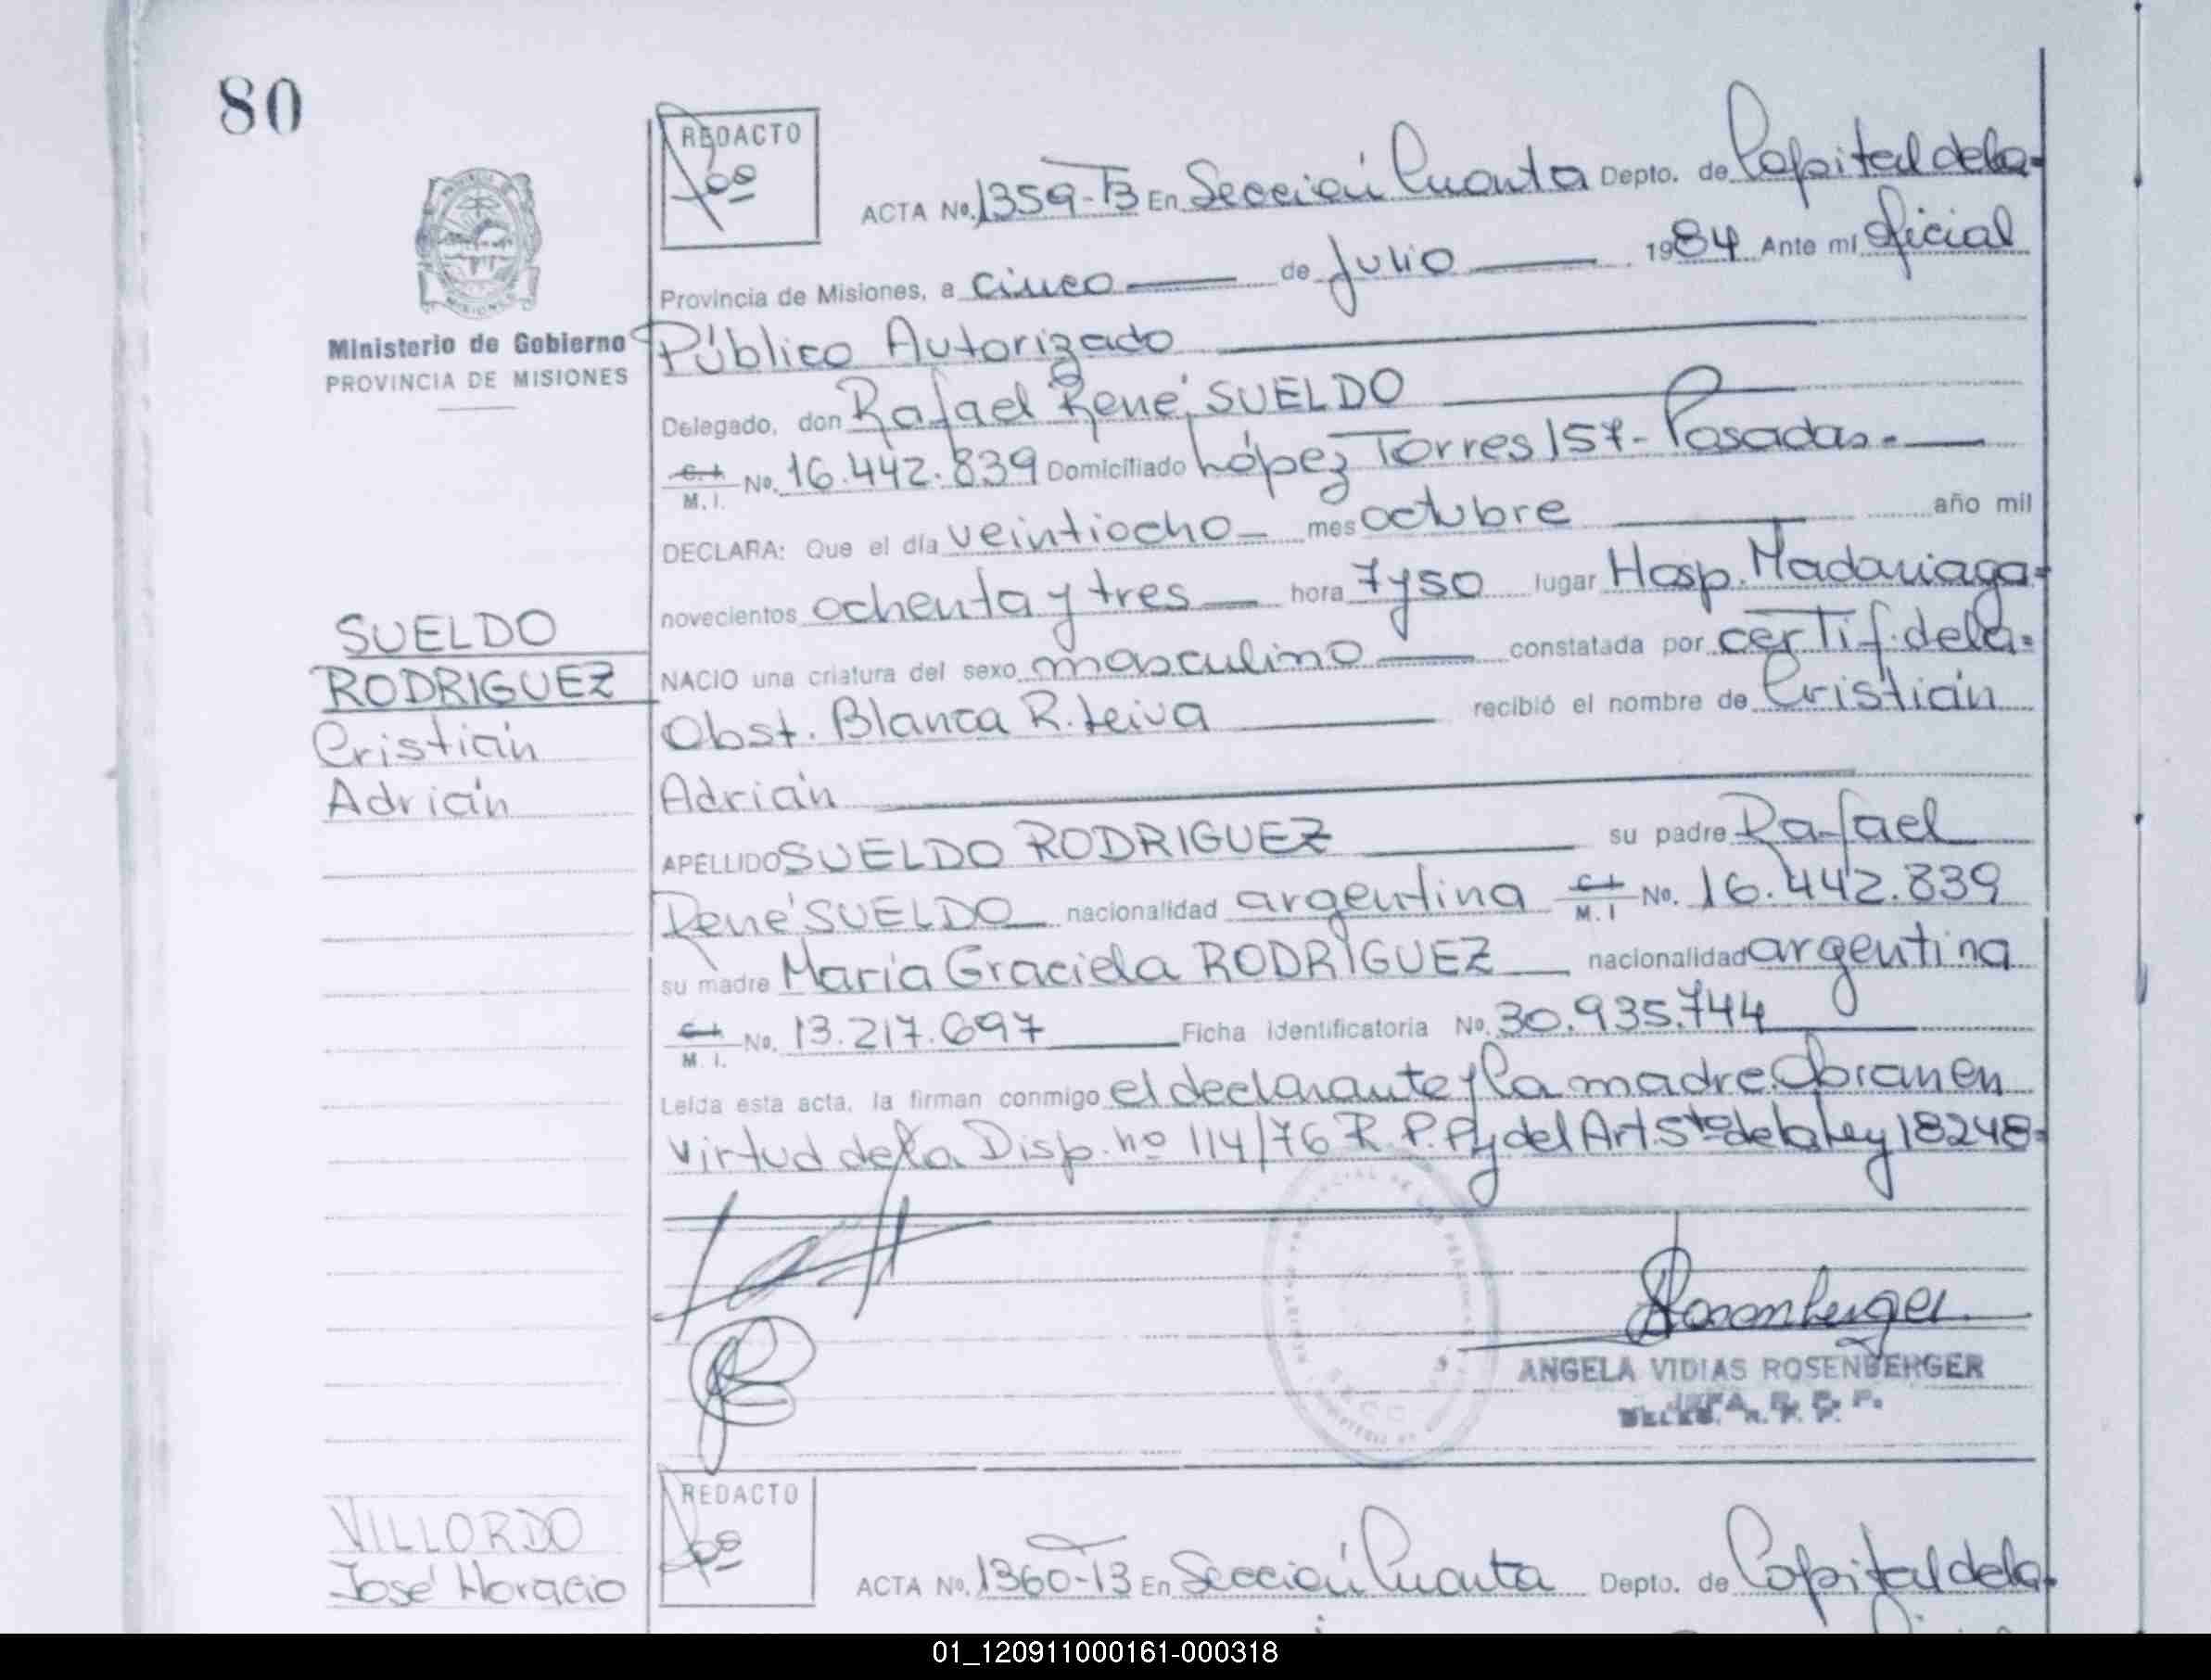 80
REDACTO
ACTA No. 1359-T3 En Sección Cuarta Depto. de Capital de la-
Provincia de Misiones, a cinco de Julio 1984 Ante mí Oficial
Ministerio de Gobierno
PROVINCIA DE MISIONES
Público Autorizado
Delegado, don Rafael René SUELDO
C.I. M.I. No. 16.442.839 Domiciliado López Torres 157- Posadas.-
DECLARA: Que el día veintiocho mes octubre año mil
novecientos ochenta y tres hora 7 y 50 lugar Hosp. Madariaga-
SUELDO
RODRIGUEZ
Cristián
Adrián
NACIO una criatura del sexo masculino constatada por certif. de la-
Obst. Blanca R. Leiva recibió el nombre de Cristián
Adrián
APELLIDO SUELDO RODRIGUEZ su padre Rafael
René SUELDO nacionalidad argentina C.I. M.I No. 16.442.839
su madre María Graciela RODRÍGUEZ nacionalidad argentina
C.I. M.I. No. 13.217.697 Ficha identificatoria No. 30.935.744
Leída esta acta, la firman conmigo el declarante y la madre. Obran en
virtud de la Disp. nº 114/76 R.P.P y del Art. 5to de la Ley 18248-
Rosenberger
ANGELA VIDIAS ROSENBERGER
VILLORDO
José Horacio
REDACTO
ACTA No. 1360-T3 En Sección Cuarta Depto. de Capital de la-
01_120911000161-000318